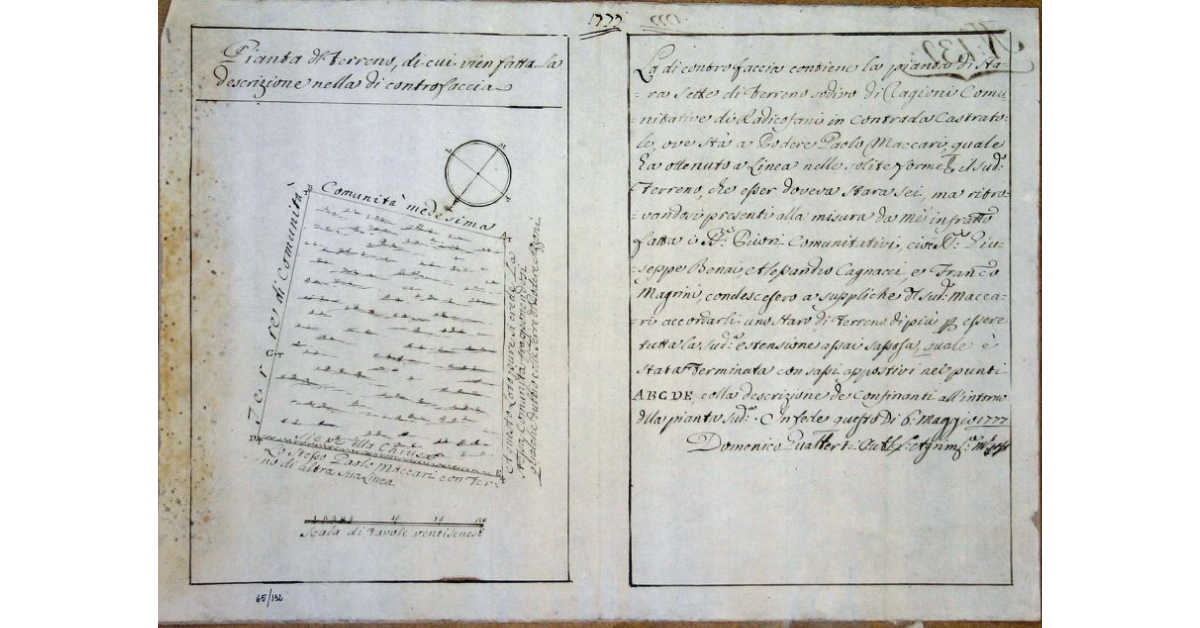 1777
Pianta di Terreno, di cui vien fatta la
descrizione nella di controfaccia
Comunità medesima
Terre di Comunità
A
B
C
D
E
Siepe alla Chiusa
Lo stesso Paolo Maccari con Ter-
no di altra sua Linea
Scala di Tavole ventisenesi
65/132
N. 132
La di contro faccia contiene la pianta di Sta-
=ra Sette di Terreno sodivo di Ragioni Comu
=nitative di Radicofani in Contrada Castrato-
le, ove stà a Podere Paolo Maccari, quale
ha ottenuto a Linea nelle solite forme il sud.
Terreno, che esser doveva Stara sei, ma ritro-
=vandosi presenti alla misura da me infratto
fatta i SS. Priori Comunitativi, cioè SS. Giu-
=seppe Bonai, Alessandro Cagnacci e Franco
Magrini, condescesero a suppliche del sud. Macca-
ri accordarli uno staro di Terreno di più p essere
tutta la sud. estensione assai sassosa, quale è
stata Terminata con sassi appostivi nei punti
ABCDE, colla descrizione de Confinanti all'intorno
della pianta sud. In fede questo Dì 6. Maggio 1777
Domenico Gualtieri